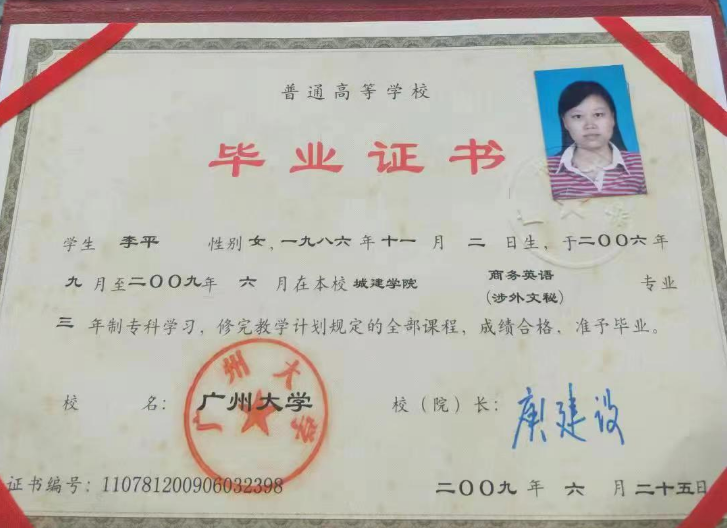 普通高等学校
毕业证书
学生 李平 性别 女，一九八六 年 十一 月 二 日生，于二〇〇六 年
九 月至二〇〇九年 六 月在本校 城建学院 商务英语（涉外文秘） 专业
三 年制专科学习，修完教学计划规定的全部课程，成绩合格，准予毕业。
校 名： 广州大学 校（院）长： 庾建设
广州大学
证书编号：110781200906032398 二〇〇九 年 六 月 二十五日